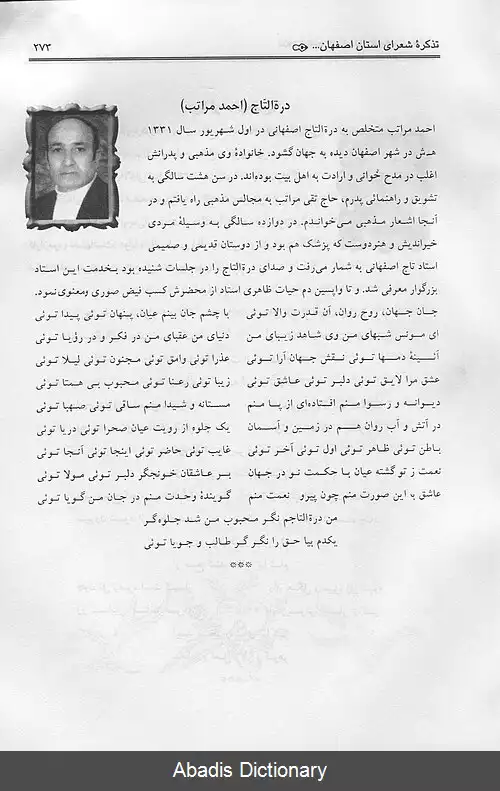 تذکرهٔ شعرای استان اصفهان...
۲۷۳
درةالتاج (احمد مراتب)
احمد مراتب متخلص به درةالتاج اصفهانی در اول شهریور سال ۱۳۳۱
هـ.ش در شهر اصفهان دیده به جهان گشود. خانوادهٔ وی مذهبی و پدرانش
اغلب در مدح خوانی و ارادت به اهل بیت بوده‌اند. در سن هشت سالگی به
تشویق و راهنمائی پدرم، حاج تقی مراتب به مجالس مذهبی راه یافتم و در
آنجا اشعار مذهبی می‌خواندم. در دوازده سالگی به وسیلهٔ مردی
خیراندیش و هنردوست که پزشک هم بود و از دوستان قدیمی و صمیمی
استاد تاج اصفهانی به شمار می‌رفت و صدای درةالتاج را در جلسات شنیده بود بخدمت این استاد
بزرگوار معرفی شد. و تا واپسین دم حیات ظاهری استاد از محضرش کسب فیض صوری ومعنوی‌نمود.
جان جهان، روح روان، آن قدرت والا توئی با چشم جان بینم عیان، پنهان توئی پیدا توئی
ای مونس شبهای من وی شاهد زیبای من دنیای من عقبای من در فکر و در رؤیا توئی
آئینهٔ دمها توئی نقش جهان آرا توئی عذرا توئی وامق توئی مجنون توئی لیلا توئی
عشق مرا لایق توئی دلبر توئی عاشق توئی زیبا توئی رعنا توئی محبوب بی همتا توئی
دیوانه و رسوا منم افتاده‌ای از پا منم مستانه و شیدا منم ساقی توئی صهبا توئی
در آتش و آب روان هم در زمین و آسمان یک جلوه از رویت عیان صحرا توئی دریا توئی
باطن توئی ظاهر توئی اول توئی آخر توئی غایب توئی حاضر توئی اینجا توئی آنجا توئی
نعمت ز تو گشته عیان با حکمت تو در جهان بر عاشقان خونجگر دلبر توئی مولا توئی
عاشق با این صورت منم چون پیرو نعمت منم گویندهٔ وحدت منم در جان من گویا توئی
من درةالتاجم نگر محبوب من شد جلوه‌گر
یکدم بیا حق را نگر گر طالب و جویا توئی
***
Abadis Dictionary